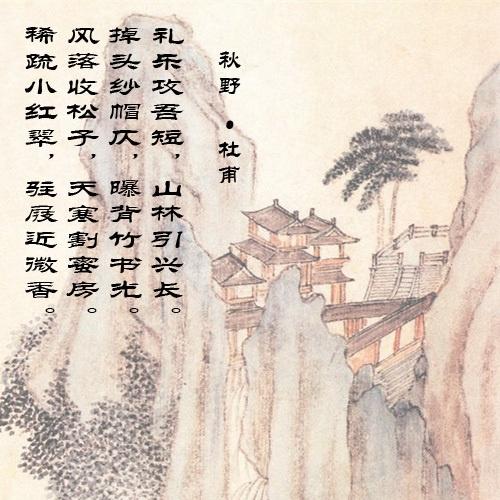 秋野·杜甫
礼乐攻吾短，山林引兴长。
掉头纱帽仄，曝背竹书光。
风落收松子，天寒割蜜房。
稀疏小红翠，驻屐近微香。